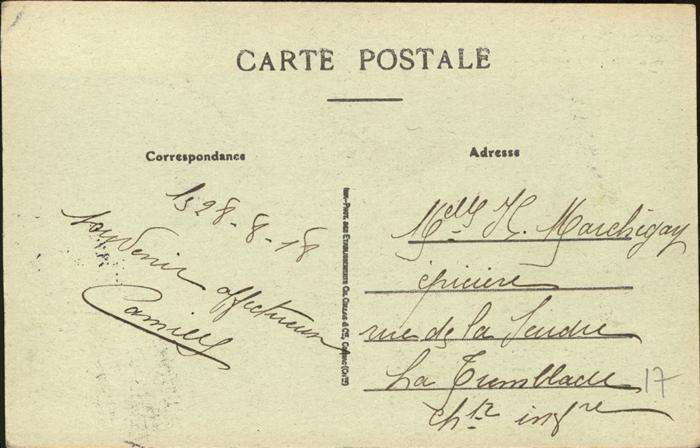 CARTE POSTALE
Correspondance
Le 28-8-18
Souvenir affectueux
Camille
Imp.-Phot. des Etablissements Ch. Collas & Cie, Cognac (Cte)
Adresse
Melle H. Marchegay
épicière
rue de la Seudre
La Tremblade
Chte infre
17